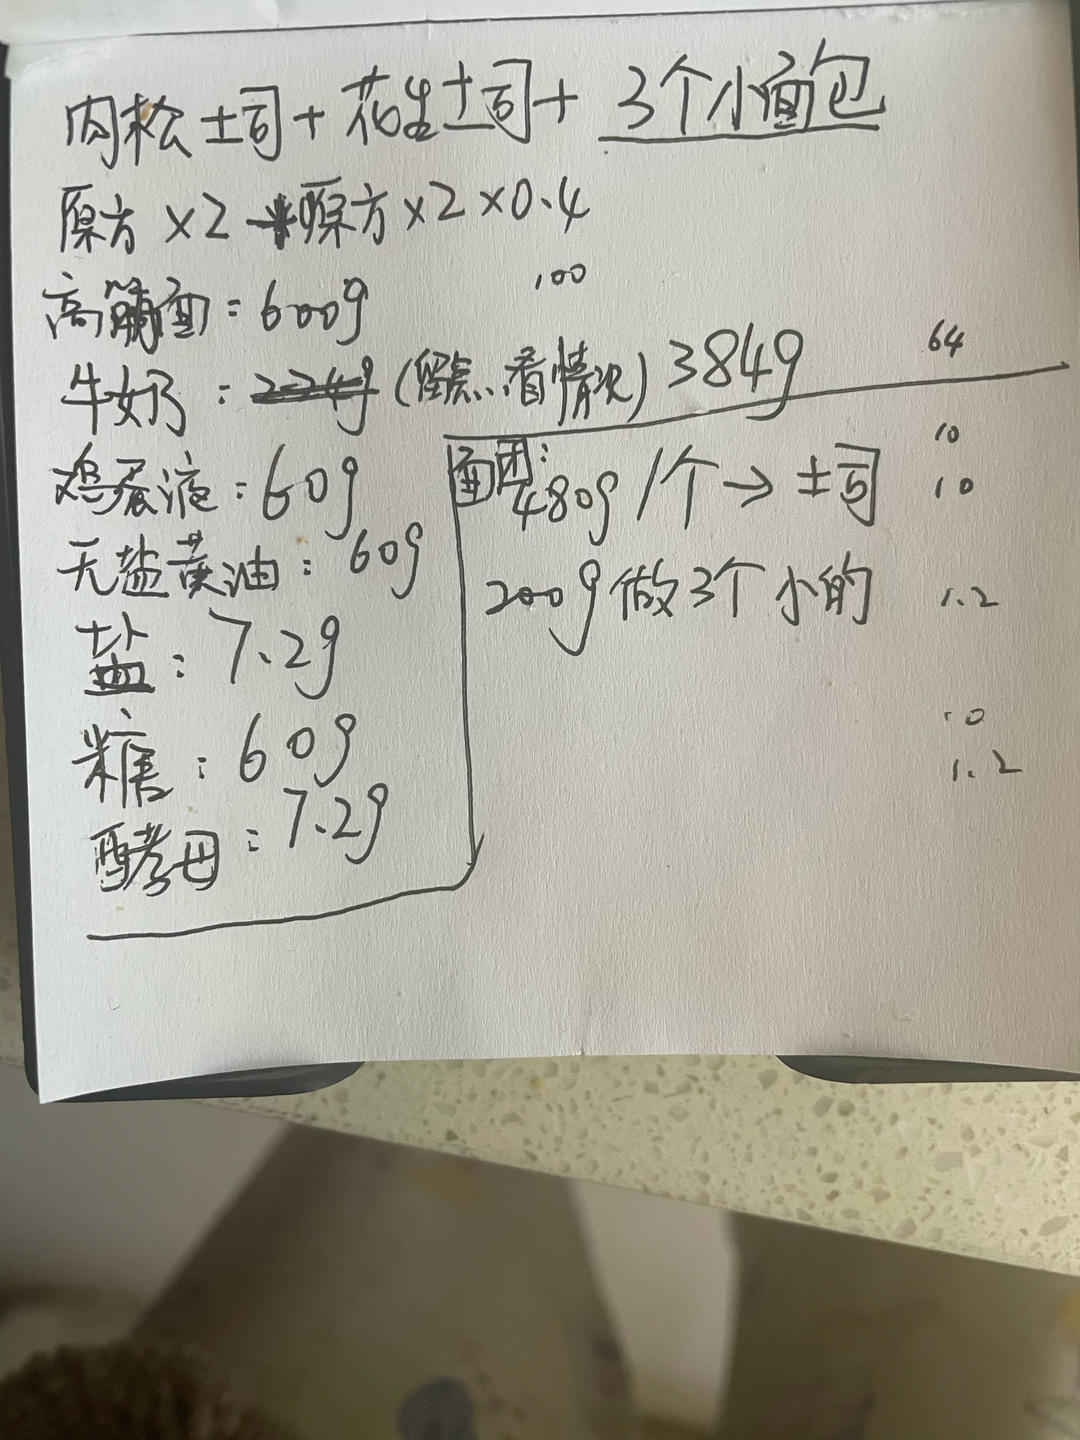 肉松土司+花生土司+3个小面包
原方×2 原方×2×0.4
100
高筋面：600g
64
牛奶：(留点、看情况) 384g
10
鸡蛋液：60g
面团：480g/个→土司
10
无盐黄油：60g
200g做3个小的
1.2
盐：7.2g
糖：60g
10
1.2
酵母：7.2g